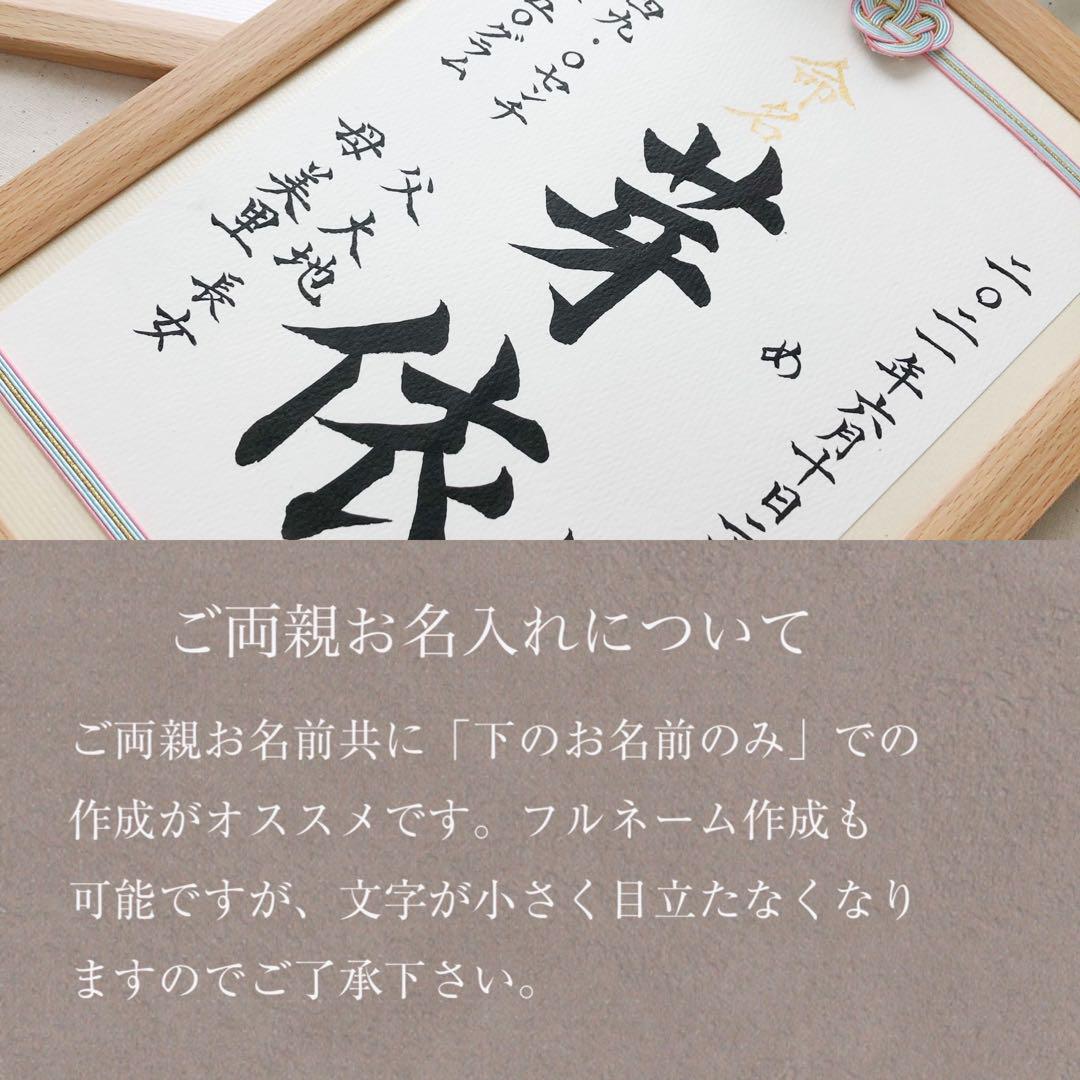 命名
二〇二一年六月十日
め
芽依
父 大地
母 美里
長女
四九・〇センチ
五〇グラム
ご両親お名入れについて
ご両親お名前共に「下のお名前のみ」での
作成がオススメです。フルネーム作成も
可能ですが、文字が小さく目立たなくなり
ますのでご了承下さい。